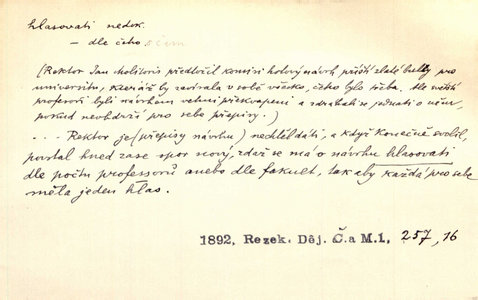 hlasovati nedok.
— dle čeho o čem
(Rektor Jan Molitoris předložil komisi hotový návrh příští zlaté bully pro
universitu, kteráž by zavírala v sobě všecko, čeho bylo třeba. Ale světští
profesoři byli návrhem velmi překvapeni a zdráhali se jednati o něm,
pokud neobdrží pro sebe přepisy.)
... Rektor je (přepisy návrhu) nechtěl dáti, a když konečně svolil,
povstal hned zase spor nový, zdaž se má o návrhu hlasovati
dle počtu professorů anebo dle fakult, tak aby každá pro sebe
měla jeden hlas.
1892, Rezek. Děj. Č. a M. 1, 257, 16